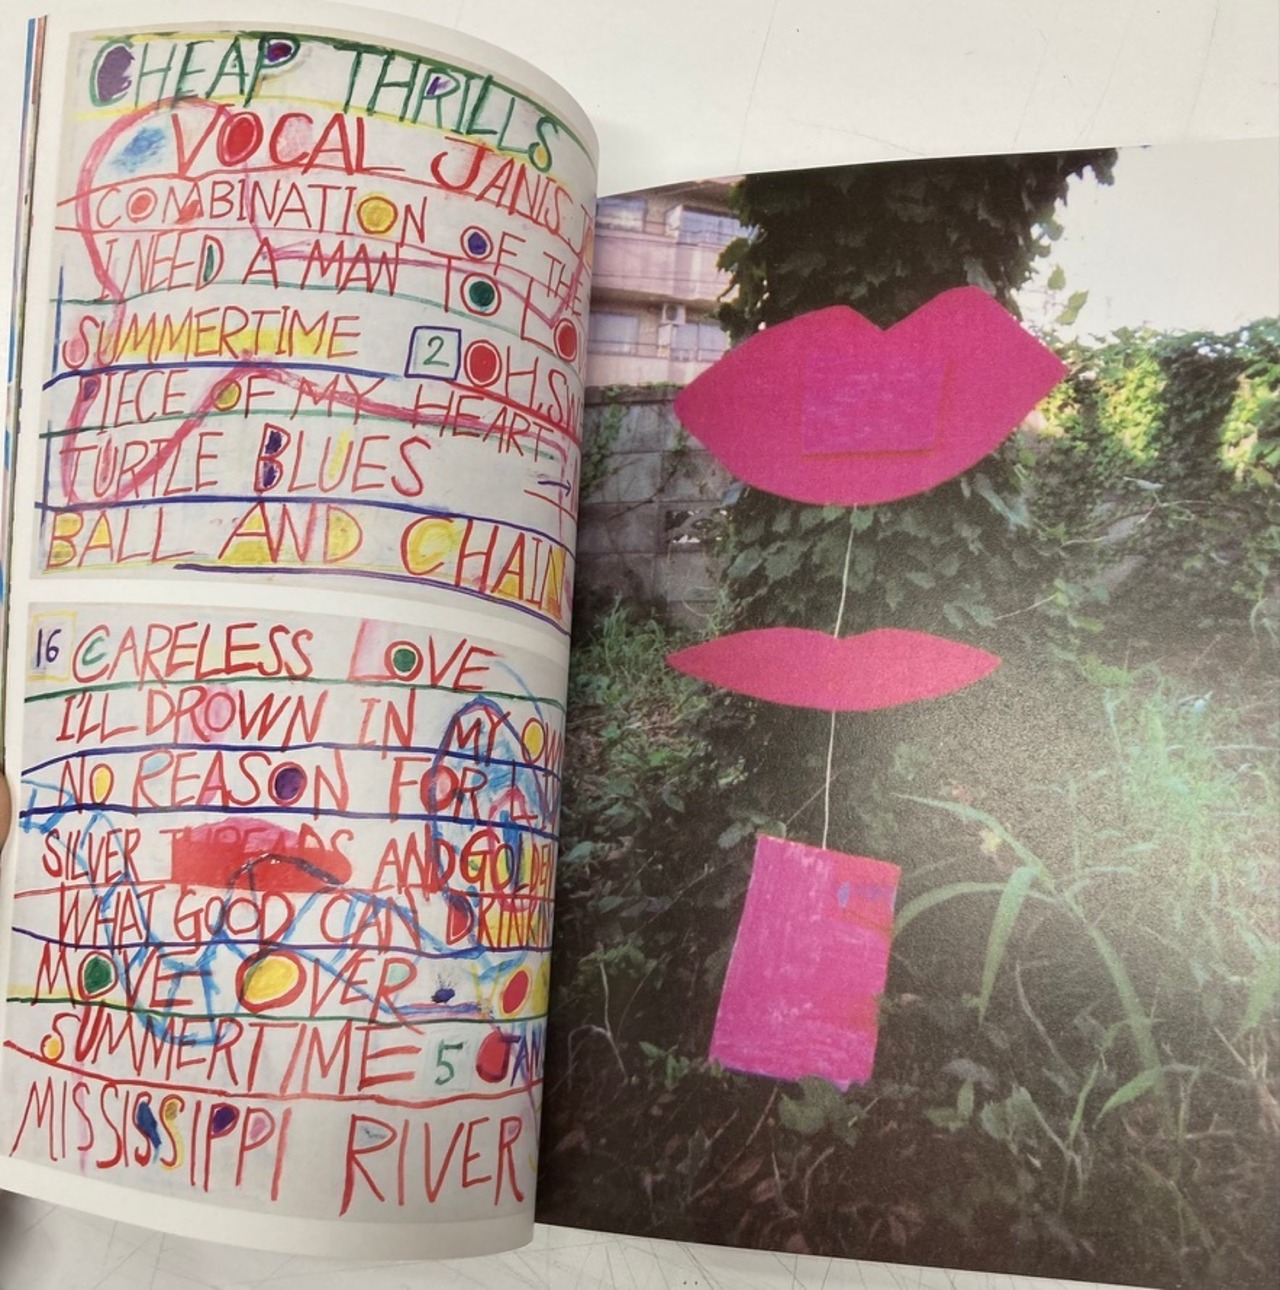 CHEAP THRILLS
VOCAL JANIS
COMBINATION OF THE
I NEED A MAN TO LO
SUMMERTIME 2 OH, SW
PIECE OF MY HEART
TURTLE BLUES
BALL AND CHAIN
16 CARELESS LOVE
I'LL DROWN IN MY OWN
NO REASON FOR LI
SILVER THREADS AND GOLDEN
WHAT GOOD CAN DRINKIN
MOVE OVER
SUMMERTIME 5 JAN
MISSISSIPPI RIVER